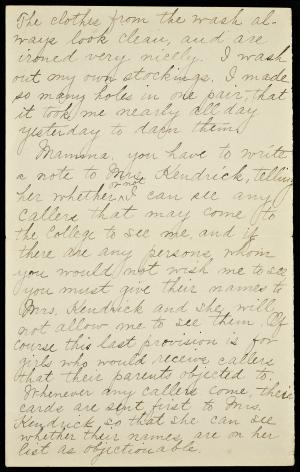 The clothes from the wash al-
ways look clean, and are
ironed very nicely. I wash
out my own stockings. I made
so many holes in one pair, that
it took me nearly all day
yesterday to darn them.
Mamma, you have to write
a note to Mrs. Kendrick, telling
or not
her whether I can see any
callers that may come to
the College to see me and if
there are any persons whom
you would not wish me to see
you must give their names to
Mrs. Kendrick and she will
not allow me to see them. Of
course this last provision is for
girls who would receive callers
that their parents objected to.
Whenever any callers come, their
cards are sent first to Mrs.
Kendrick, so that she can see
whether their names are on her
list as objectionable.